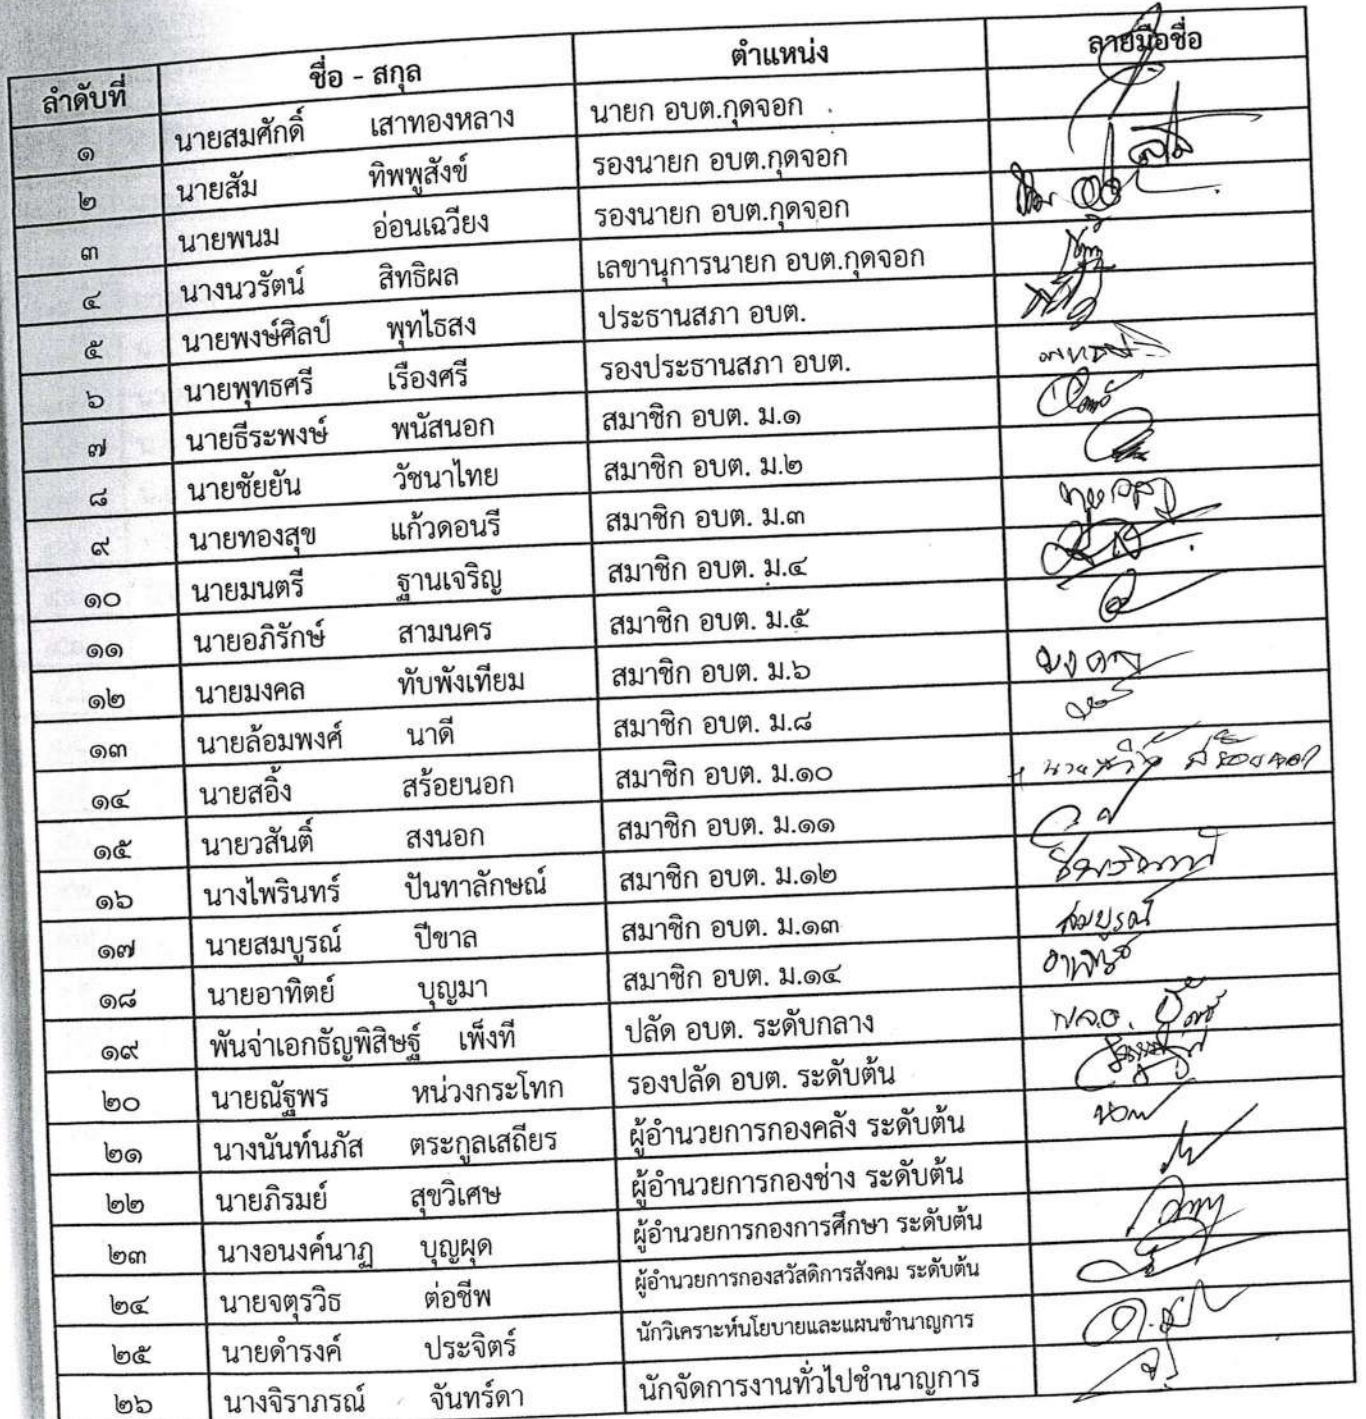 ลำดับที่ ชื่อ - สกุล ตำแหน่ง ลายมือชื่อ
๑ นายสมศักดิ์ เสาทองหลาง นายก อบต.กุดจอก
๒ นายสัม ทิพพูสังข์ รองนายก อบต.กุดจอก
๓ นายพนม อ่อนเฉวียง รองนายก อบต.กุดจอก
๔ นางนวรัตน์ สิทธิผล เลขานุการนายก อบต.กุดจอก
๕ นายพงษ์ศิลป์ พุทไธสง ประธานสภา อบต.
๖ นายพุทธศรี เรืองศรี รองประธานสภา อบต.
๗ นายธีระพงษ์ พนัสนอก สมาชิก อบต. ม.๑
๘ นายชัยยัน วัชนาไทย สมาชิก อบต. ม.๒
๙ นายทองสุข แก้วดอนรี สมาชิก อบต. ม.๓
๑๐ นายมนตรี ฐานเจริญ สมาชิก อบต. ม.๔
๑๑ นายอภิรักษ์ สามนคร สมาชิก อบต. ม.๕
๑๒ นายมงคล ทับพังเทียม สมาชิก อบต. ม.๖ มงคล
๑๓ นายล้อมพงศ์ นาดี สมาชิก อบต. ม.๘
๑๔ นายสอิ้ง สร้อยนอก สมาชิก อบต. ม.๑๐
๑๕ นายวสันติ์ สงนอก สมาชิก อบต. ม.๑๑
๑๖ นางไพรินทร์ ปันทาลักษณ์ สมาชิก อบต. ม.๑๒
๑๗ นายสมบูรณ์ ปีขาล สมาชิก อบต. ม.๑๓ สมบูรณ์
๑๘ นายอาทิตย์ บุญมา สมาชิก อบต. ม.๑๔
๑๙ พันจ่าเอกธัญพิสิษฐ์ เพ็งที ปลัด อบต. ระดับกลาง พ.จ.อ.
๒๐ นายณัฐพร หน่วงกระโทก รองปลัด อบต. ระดับต้น
๒๑ นางนันท์นภัส ตระกูลเสถียร ผู้อำนวยการกองคลัง ระดับต้น
๒๒ นายภิรมย์ สุขวิเศษ ผู้อำนวยการกองช่าง ระดับต้น
๒๓ นางอนงค์นาฏ บุญผุด ผู้อำนวยการกองการศึกษา ระดับต้น
๒๔ นายจตุรวิธ ต่อชีพ ผู้อำนวยการกองสวัสดิการสังคม ระดับต้น
๒๕ นายดำรงค์ ประจิตร์ นักวิเคราะห์นโยบายและแผนชำนาญการ
๒๖ นางจิราภรณ์ จันทร์ดา นักจัดการงานทั่วไปชำนาญการ